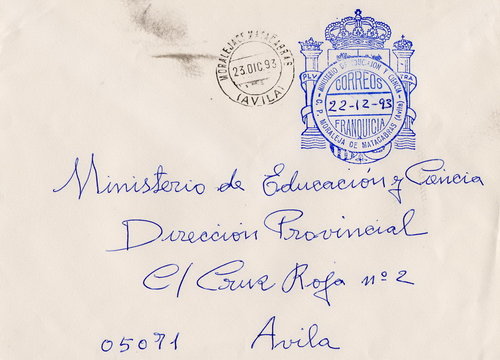 MORALEJA DE MATACABRAS
23.DIC.93
(AVILA)
MINISTERIO DE EDUCACION Y CIENCIA
CORREOS
22-12-93
FRANQUICIA
C.P. MORALEJA DE MATACABRAS (Avila)
Ministerio de Educación y Ciencia
Dirección Provincial
C/ Cruz Roja nº 2
05071 Avila